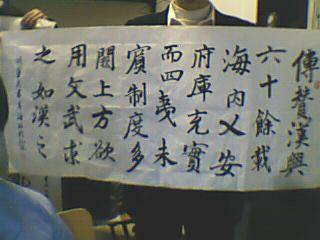 傳贊漢興
六十餘載
海内乂安
府庫充實
而四夷未
賓制度多
闕上方欲
用文武求
之如漢之